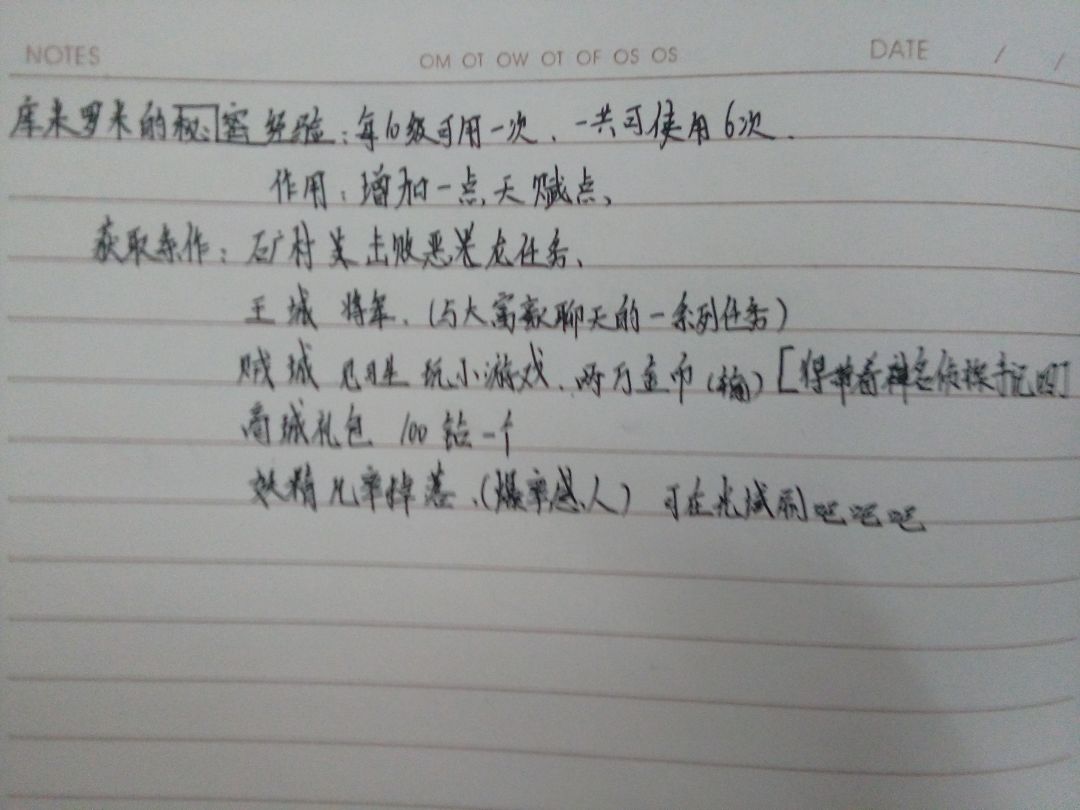 NOTES
OM OT OW OT OF OS OS
DATE / /
库米罗米的秘密经验:每10级可用一次、一共可使用6次.
作用:增加一点天赋点、
获取条件:矿村 某击败恶龙任务、
王城 将军、(与大富豪聊天的一系列任务)
贼城 玩小游戏、两万金币 [得带着神名侦探手记的]
商城礼包 100钻一个
妖精几率掉落、(爆率感人) 可在光域刷吧吧吧